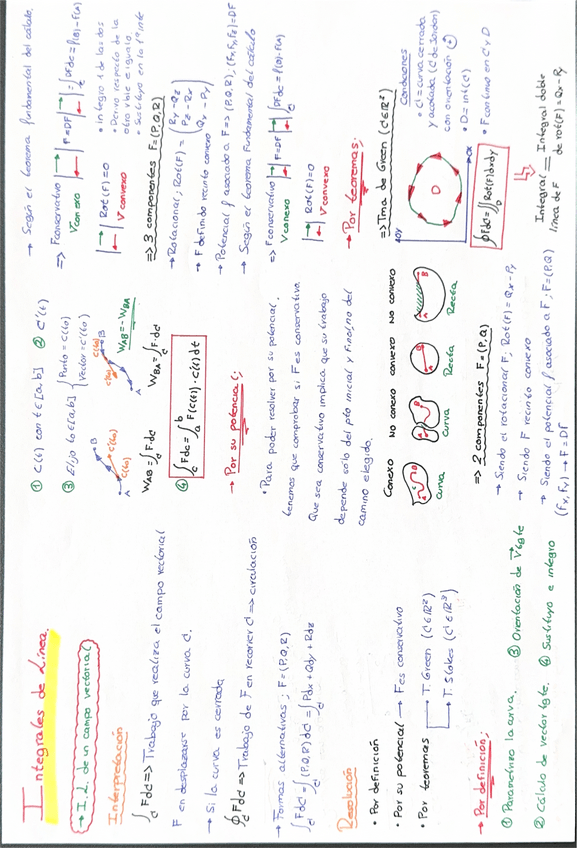 Integrales de Línea.
→ I.L. de un campo vectorial
Interpretación
∫c F dc => Trabajo que realiza el campo vectorial
F en desplazarse por la curva C.
→ Si la curva es cerrada
∮c F dc => Trabajo de F en recorrer C => circulación
→ Formas alternativas; F=(P,Q,R)
∫c F dc = ∫c (P,Q,R) dc = ∫c Pdx + Qdy + Rdz
Resolución
• Por definición
• Por su potencial → F es conservativo
• Por teoremas → T. Green (C∈ℝ²)
→ T. Stokes (C∈ℝ³)
→ Por definición;
① Parametrizo la curva. ③ Orientación de V tgte
② Cálculo de vector tgte. ④ Sustituyo e integro
① C(t) con t∈[a,b] ② C'(t)
③ Elijo t0∈[a,b] { Punto = C(t0)
Vector = C'(t0)
B C'(t0) C(t0) A
B C'(t0) C(t0) A
W_AB = ∫c F·dc W_BA = ∫c F·dc
W_AB = -W_BA
④ ∫c F dc = ∫a^b F(C(t))·C'(t) dt
→ Por su potencial;
• Para poder resolver por su potencial,
tenemos que comprobar si F es conservativa.
Que sea conservativo implica que su trabajo
depende solo del pto inicial y final no del
camino elegido.
Conexo No conexo Convexo No convexo
A B
curva curva Recta Recta
=> 2 componentes F=(P,Q)
→ Siendo el rotacional F; Rot(F) = Qx - Py
→ Siendo F recinto conexo
→ Siendo el potencial f asociado a F; F=(P,Q)
(fx, fy) → F = Df
→ Según el teorema fundamental del cálculo.
=> F conservativo | F=DF | ∫c DF dc = f(B)-f(A)
V conexo
| Rot(F)=0
V convexo
• Integro 1 de las dos
• Derivo respecto de la
otra vble e igualo
• Sustituyo en la 1º inte
=> 3 componentes F=(P,Q,R)
→ Rotacional; Rot(F) = (Ry - Qz
Pz - Rx
Qx - Py)
→ F definido recinto conexo
→ Potencial f asociado a F => (P,Q,R), (Fx,Fy,Fz)=DF
→ Según el teorema fundamental del cálculo
=> F conservativo | F=DF | ∫c DF dc = f(B)-f(A)
V conexo
| Rot(F)=0
V convexo
→ Por teoremas.
=> Tma de Green (C∈ℝ²)
Condiciones
• C = curva cerrada
y acotada (C de Jordan)
con orientación ⊕
• D = int(C)
• F continuo en C y D
OY D OX
∮ F dc = ∬D Rot(F) dx dy
Integral línea de F = Integral doble de rot(F) = Qx - Py